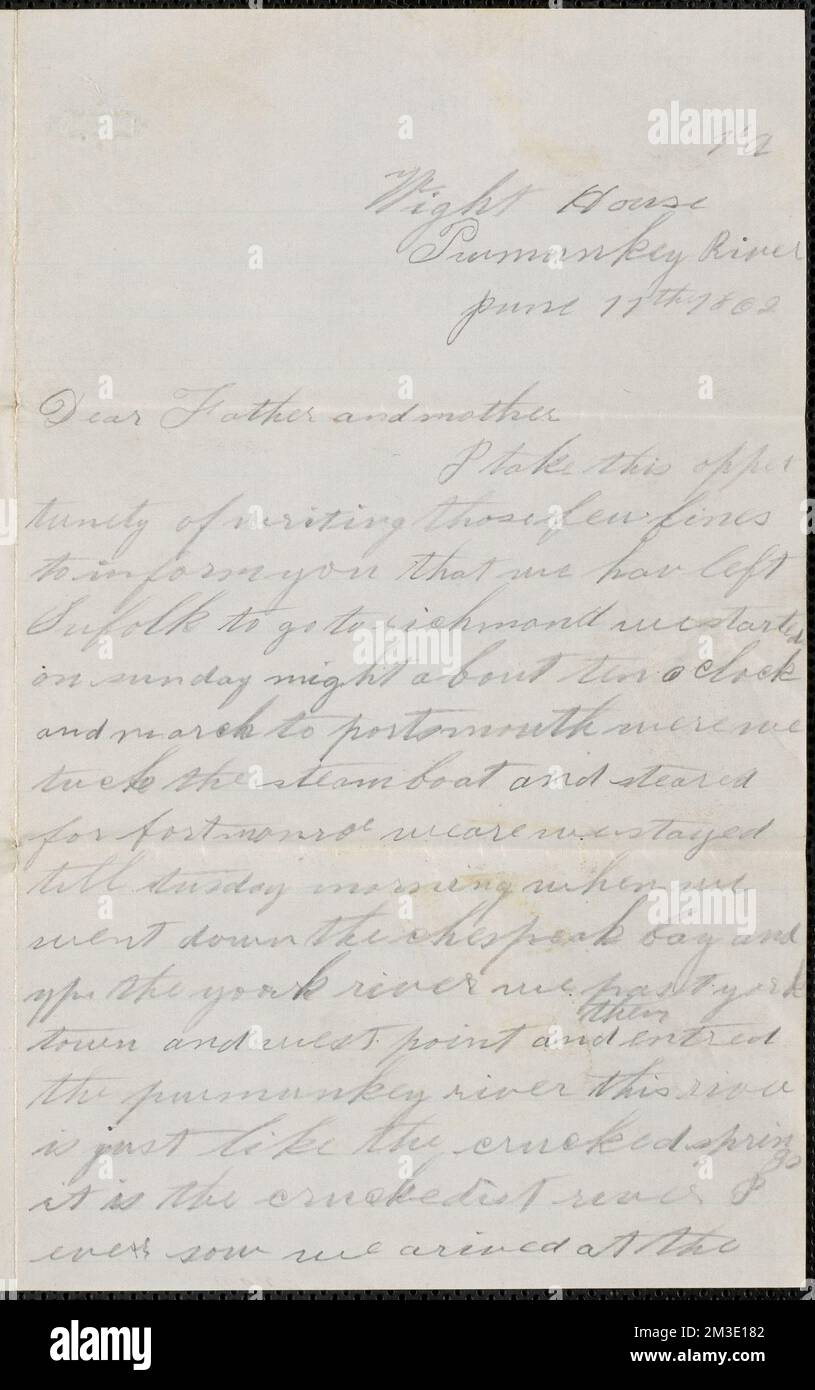 Va
Wight House
Pwmunkey River
June 11th 1862
Dear Father and mother
I take this opper
tunety of writing those few lines
to inform you that we hav left
Sufolk to go to richmond we started
on sunday night about ten o clock
and march to portsmouth were we
tuck the steam boat and steared
for fort monroe weare we stayed
till tusday morning when we
went down the chespeak bay and
up the york river we past york
town and west point and then entred
the pwmunkey river this rive
is just like the crucked spring
it is the cruckedist river I
ever sow we arived at the
alamy
Image ID: 2M3E182
www.alamy.com